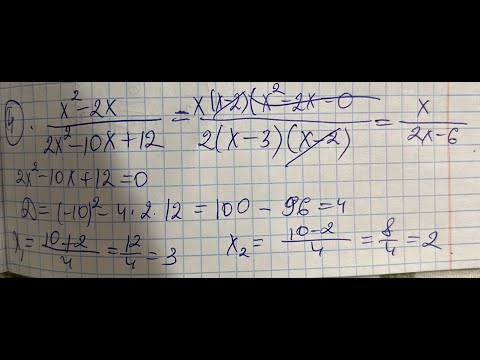 4. (x² - 2x)/(2x² - 10x + 12) = x(x-2)(x² - 2x - 0)/2(x-3)(x-2) = x/(2x-6)
2x² - 10x + 12 = 0
D = (-10)² - 4·2·12 = 100 - 96 = 4
x₁ = (10+2)/4 = 12/4 = 3 x₂ = (10-2)/4 = 8/4 = 2